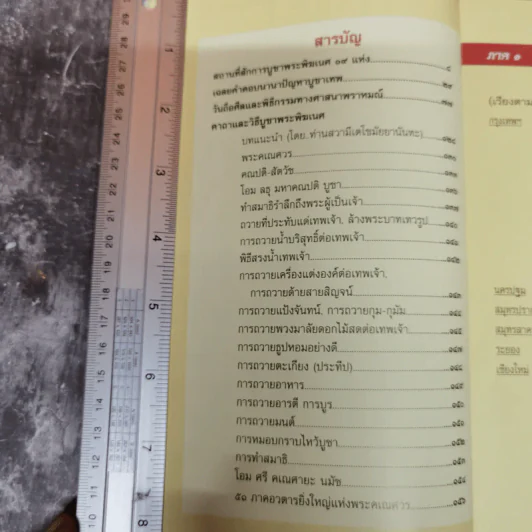 สารบัญ
สถานที่สักการบูชาพระพิฆเนศ ๑๙ แห่ง
เฉลยคำตอบนานาปัญหาบูชาเทพ
วันถือศีลและพิธีกรรมทางศาสนาพราหมณ์
คาถาและวิธีบูชาพระพิฆเนศ
บทแนะนำ (โดย. ท่านสวามีเตโชมัยยานันทะ)
พระคเณศวร
คณปติ-สัตวัช
โอม ลธุ มหาคณปติ บูชา
ทำสมาธิรำลึกถึงพระผู้เป็นเจ้า
ถวายที่ประทับแด่เทพเจ้า, ล้างพระบาทเทวรูป
การถวายน้ำบริสุทธิ์ต่อเทพเจ้า
พิธีสรงน้ำเทพเจ้า
การถวายเครื่องแต่งองค์ต่อเทพเจ้า,
การถวายด้ายสายสิญจน์
การถวายแป้งจันทน์, การถวายกุม-กุมัม
การถวายพวงมาลัยดอกไม้สดต่อเทพเจ้า
การถวายธูปหอมอย่างดี
การถวายตะเกียง (ประทีป)
การถวายอาหาร
การถวายอารตี การบูร
การถวายมนต์
การหมอบกราบไหว้บูชา
การทำสมาธิ
โอม ศรี คเณศายะ นมัช
๕๑ ภาคอวตารยิ่งใหญ่แห่งพระคเณศวร
ภาค ๑
(เรียงตาม
กรุงเทพฯ
นครปฐม
สมุทรปรา
สมุทรสาค
ระยอง
เชียงใหม่